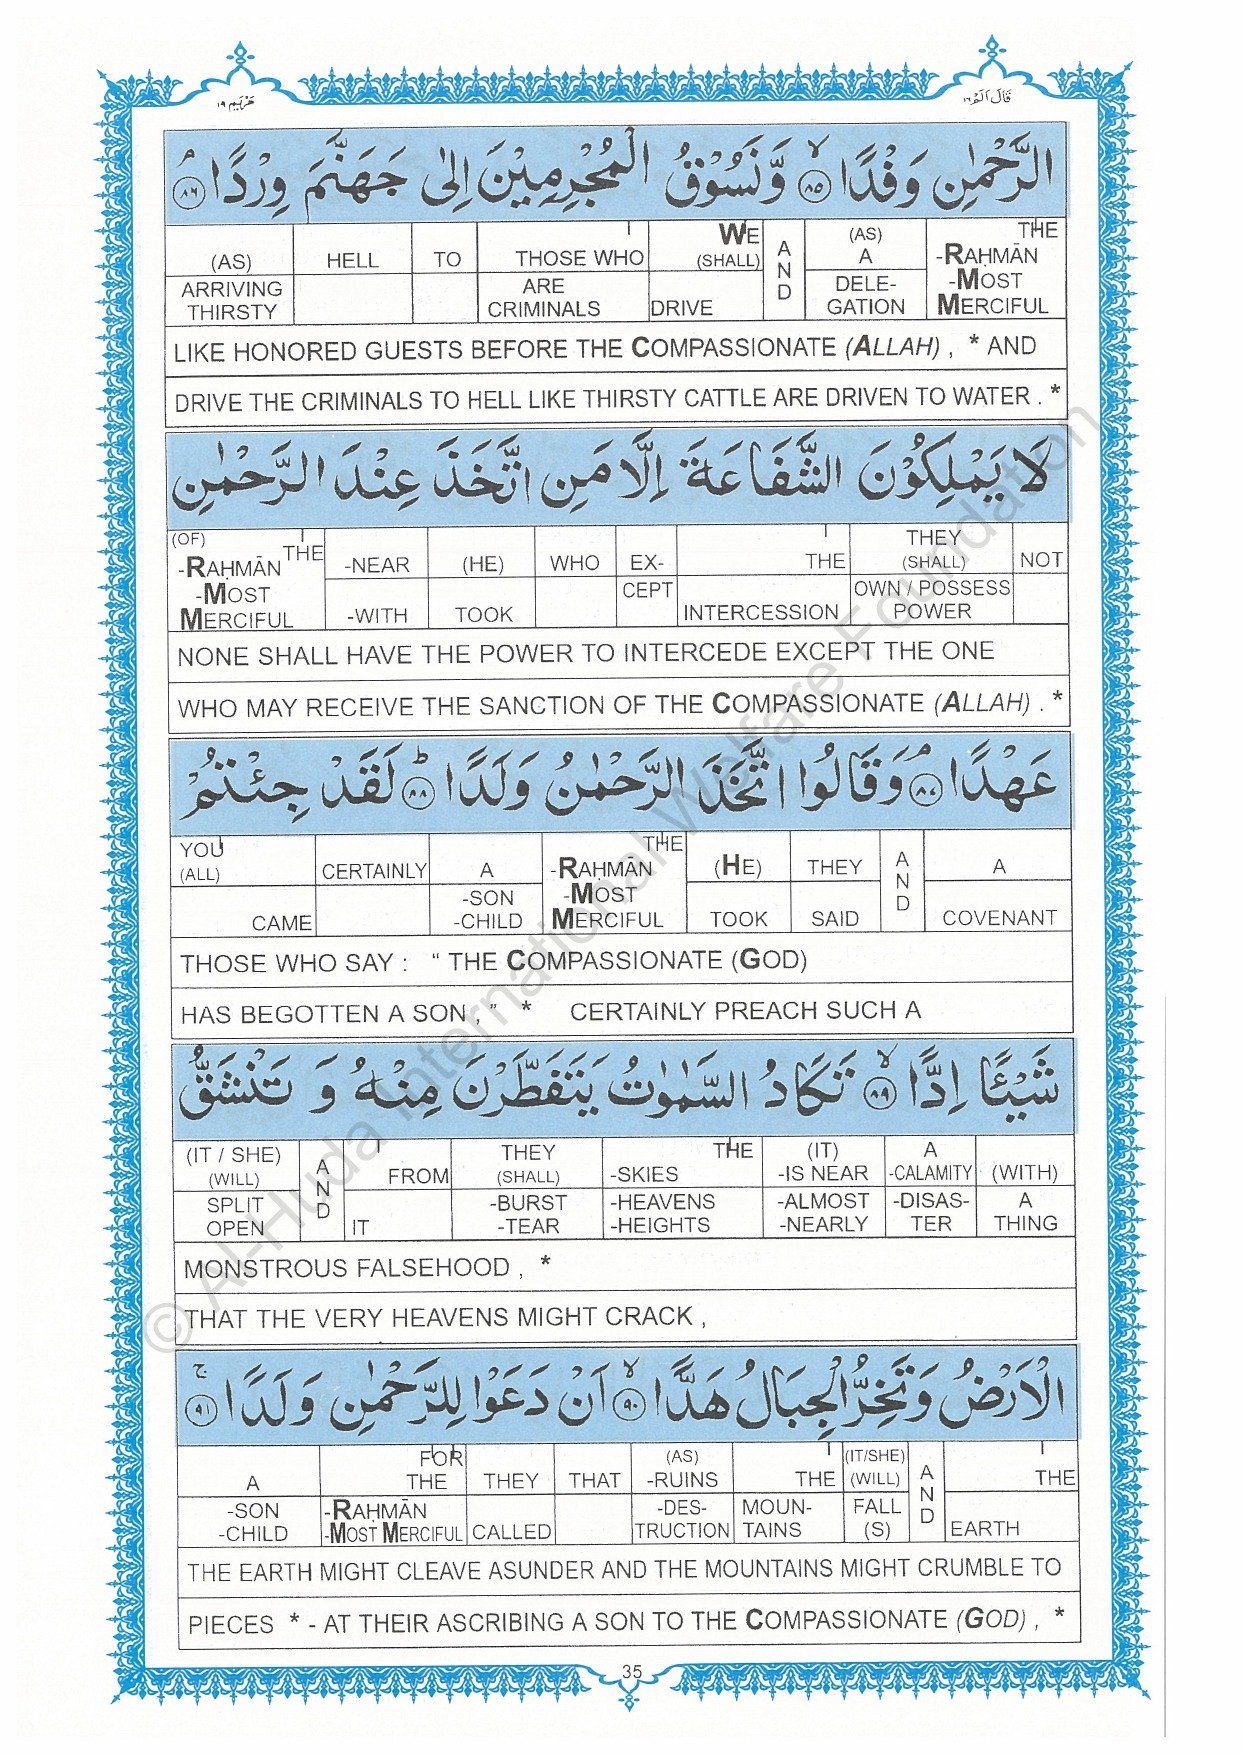 مَرْيَم ١٩
قَالَ اَلَمْ ١٦
الرَّحْمٰنِ وَفْدًا ۙ﴿٨٥﴾ وَّنَسُوْقُ الْمُجْرِمِيْنَ اِلٰى جَهَنَّمَ وِرْدًا ۘ﴿٨٦﴾
THE -RAḤMĀN -MOST MERCIFUL | (AS) A DELE-GATION | AND | WE (SHALL) DRIVE | THOSE WHO ARE CRIMINALS | TO | HELL | (AS) ARRIVING THIRSTY
LIKE HONORED GUESTS BEFORE THE COMPASSIONATE (ALLAH) , * AND
DRIVE THE CRIMINALS TO HELL LIKE THIRSTY CATTLE ARE DRIVEN TO WATER . *
لَا يَمْلِكُوْنَ الشَّفَاعَةَ اِلَّا مَنِ اتَّخَذَ عِنْدَ الرَّحْمٰنِ
NOT | THEY (SHALL) OWN / POSSESS POWER | THE INTERCESSION | EX-CEPT | WHO | (HE) TOOK | -NEAR -WITH | (OF) THE -RAḤMĀN -MOST MERCIFUL
NONE SHALL HAVE THE POWER TO INTERCEDE EXCEPT THE ONE
WHO MAY RECEIVE THE SANCTION OF THE COMPASSIONATE (ALLAH) . *
عَهْدًا ۘ﴿٨٧﴾ وَقَالُوا اتَّخَذَ الرَّحْمٰنُ وَلَدًا ؕ﴿٨٨﴾ لَقَدْ جِئْتُمْ
A COVENANT | AND | THEY SAID | (HE) TOOK | THE -RAḤMĀN -MOST MERCIFUL | A -SON -CHILD | CERTAINLY | YOU (ALL) CAME
THOSE WHO SAY : “ THE COMPASSIONATE (GOD)
HAS BEGOTTEN A SON , ” * CERTAINLY PREACH SUCH A
شَيْئًا اِدًّا ۙ﴿٨٩﴾ تَكَادُ السَّمٰوٰتُ يَتَفَطَّرْنَ مِنْهُ وَ تَنْشَقُّ
(WITH) A THING | A -CALAMITY -DISAS-TER | (IT) -IS NEAR -ALMOST -NEARLY | THE -SKIES -HEAVENS -HEIGHTS | THEY (SHALL) -BURST -TEAR | FROM IT | AND | (IT / SHE) (WILL) SPLIT OPEN
MONSTROUS FALSEHOOD , *
THAT THE VERY HEAVENS MIGHT CRACK ,
الْاَرْضُ وَتَخِرُّ الْجِبَالُ هَدًّا ۙ﴿٩٠﴾ اَنْ دَعَوْا لِلرَّحْمٰنِ وَلَدًا ۚ﴿٩١﴾
THE EARTH | AND | (IT/SHE) (WILL) FALL (S) | THE MOUN-TAINS | (AS) -RUINS -DES-TRUCTION | THAT | THEY CALLED | FOR THE -RAḤMĀN -MOST MERCIFUL | A -SON -CHILD
THE EARTH MIGHT CLEAVE ASUNDER AND THE MOUNTAINS MIGHT CRUMBLE TO
PIECES * - AT THEIR ASCRIBING A SON TO THE COMPASSIONATE (GOD) , *
35
© Al-Huda International Welfare Foundation